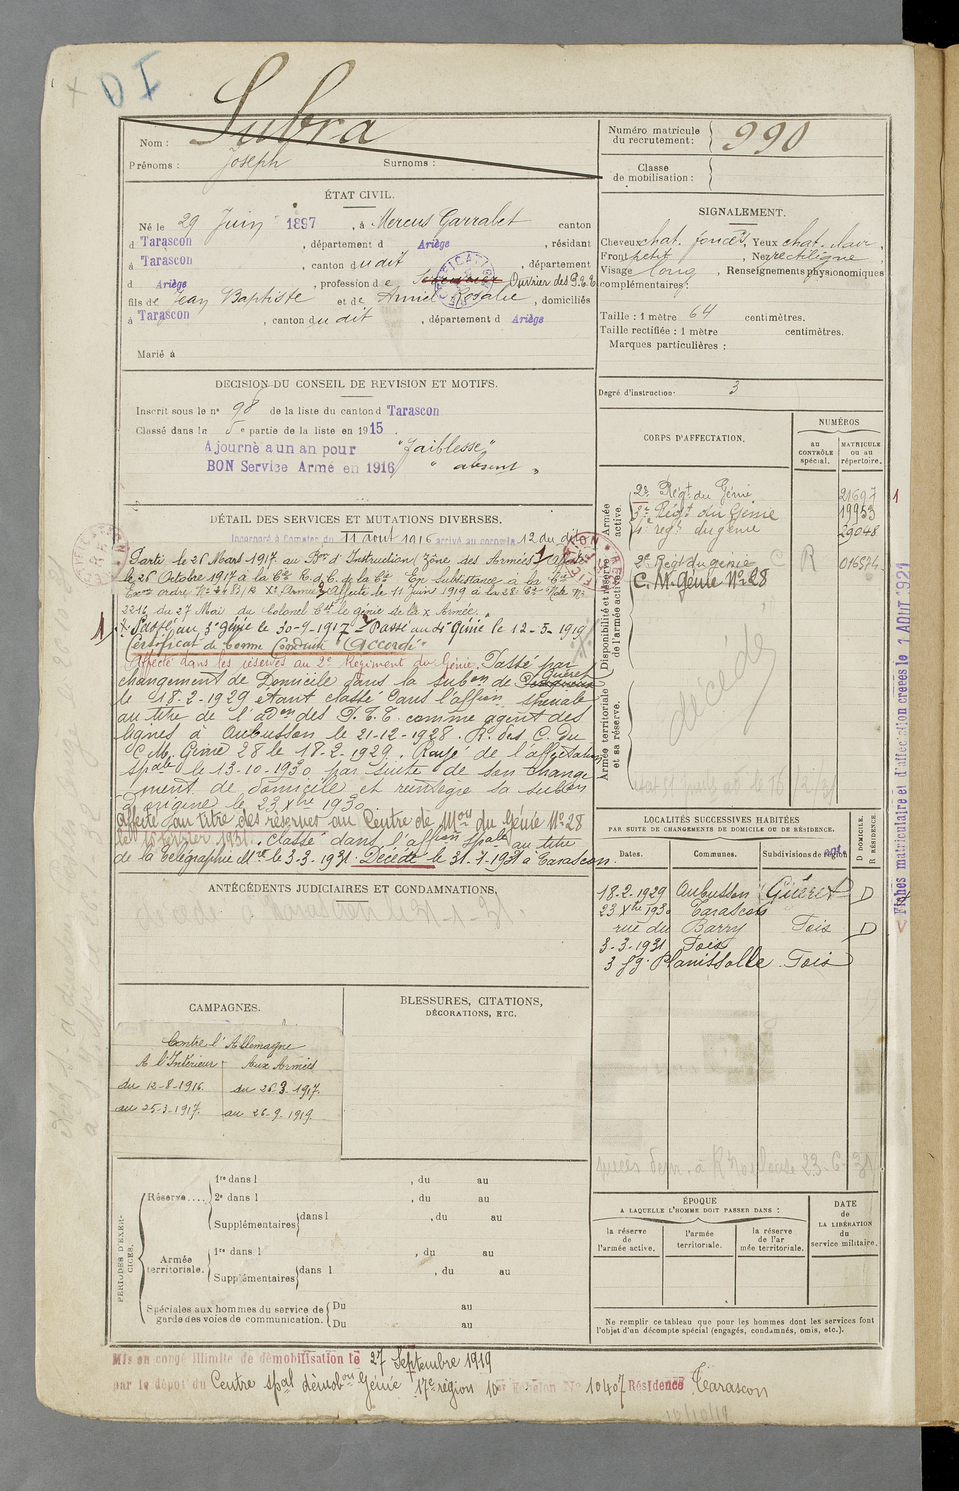 D I
Nom : Subra
Prénoms : Joseph Surnoms :
Numéro matricule du recrutement : 990
Classe de mobilisation :
ÉTAT CIVIL.
Né le 29 Juin 1897, à Mercus Garrabet canton
d Tarascon, département d Ariège, résidant
à Tarascon, canton dudit, département
d Ariège, profession de Ouvrier des P.T.T.
fils de Jean Baptiste et de Rosalie, domiciliés
à Tarascon, canton dudit, département d Ariège
Marié à
SIGNALEMENT.
Cheveux chat. foncés, Yeux chat. clair,
Front petit, Nez rectiligne,
Visage long, Renseignements physionomiques
complémentaires :
Taille : 1 mètre 64 centimètres.
Taille rectifiée : 1 mètre centimètres.
Marques particulières :
Degré d'instruction : 3
DÉCISION DU CONSEIL DE REVISION ET MOTIFS.
Inscrit sous le n° 98 de la liste du canton d Tarascon
Classé dans la 5e partie de la liste en 1915.
Ajourné a un an pour "faiblesse"
BON Service Armé en 1916 "absent"
CORPS D'AFFECTATION.
NUMÉROS
au CONTRÔLE spécial.
MATRICULE ou au répertoire.
Armée active.
2e Régt du Génie 21697
3e Régt du Génie 19953
4e regt du génie 29048
Disponibilité et réserve de l'armée active.
2e Régt du génie R 016574
C. M. Génie No 28
Armée territoriale et sa réserve.
décédé
DÉTAIL DES SERVICES ET MUTATIONS DIVERSES.
Incorporé à compter du 11 aout 1916 arrivé au corps le 12 du dit
Parti le 26 Mars 1917 au Bon d'Instruction (Zône des Armées) Affecté
le 26 Octobre 1917 à la Cie R. d. T. de la
Affecté le 11 juin 1919 à la 28e Cie Note No
2216 du 27 Mai du Colonel Ct le génie de la X Armée
Passé au 3e génie le 30-9-1917 Passé au 4e Génie le 12-5-1919
Certificat de bonne Conduite "Accordé"
Affecté dans les réserves au 2e Régiment du Génie. Passé par
changement de Domicile dans la subon de Guéret
le 18-2-1929 étant classé dans l'affon spéciale
au titre de l'adon des P.T.T. comme agent des
lignes à Aubusson le 21-12-1928. R. des C. du
C.M. Génie 28 le 18-2-1929. Rayé de l'affectation
spale le 13-10-1930 par suite de son change
ment de domicile et réintègre sa subon
d'origine le 23 Xbre 1930
affecté au titre des réserves au Centre de Mon du Génie No 28
le 1er février 1931. classé dans l'affon spale au titre
de la Télégraphie Mre le 3-3-1931 Décédé le 31-7-1931 à Tarascon.
LOCALITÉS SUCCESSIVES HABITÉES
PAR SUITE DE CHANGEMENTS DE DOMICILE OU DE RÉSIDENCE.
Dates. Communes. Subdivisions de région D DOMICILE. R RÉSIDENCE.
18-2-1929 Aubusson Guéret D
23 Xbre 1930 Tarascon
rue du Barry Foix D
3-3-1931 Foix
3 fg. Planissolle Foix
ANTÉCÉDENTS JUDICIAIRES ET CONDAMNATIONS,
CAMPAGNES.
Contre l'Allemagne
A l'Intérieur Aux Armées
du 12-8-1916. du 26-3-1917.
au 25-3-1917. au 26-9-1919.
BLESSURES, CITATIONS,
DÉCORATIONS, ETC.
PÉRIODES D'EXERCICES.
Réserve....
1re dans l , du au
2e dans l , du au
Supplémentaires dans l , du au
Armée territoriale.
1re dans l , du au
Supplémentaires dans l , du au
Spéciales aux hommes du service de garde des voies de communication.
Du au
Du au
ÉPOQUE
A LAQUELLE L'HOMME DOIT PASSER DANS :
la réserve de l'armée active.
l'armée territoriale.
la réserve de l'armée territoriale.
DATE de LA LIBÉRATION du service militaire.
Ne remplir ce tableau que pour les hommes dont les services font
l'objet d'un décompte spécial (engagés, condamnés, omis, etc.).
Mis en congé illimité de démobilisation le 27 Septembre 1919
par le dépôt du Centre spal démobon Génie 17e région 10er Echelon No 10407 Résidence Tarascon
Fiches matriculaire et d'affectation créées le 1 AOUT 1921